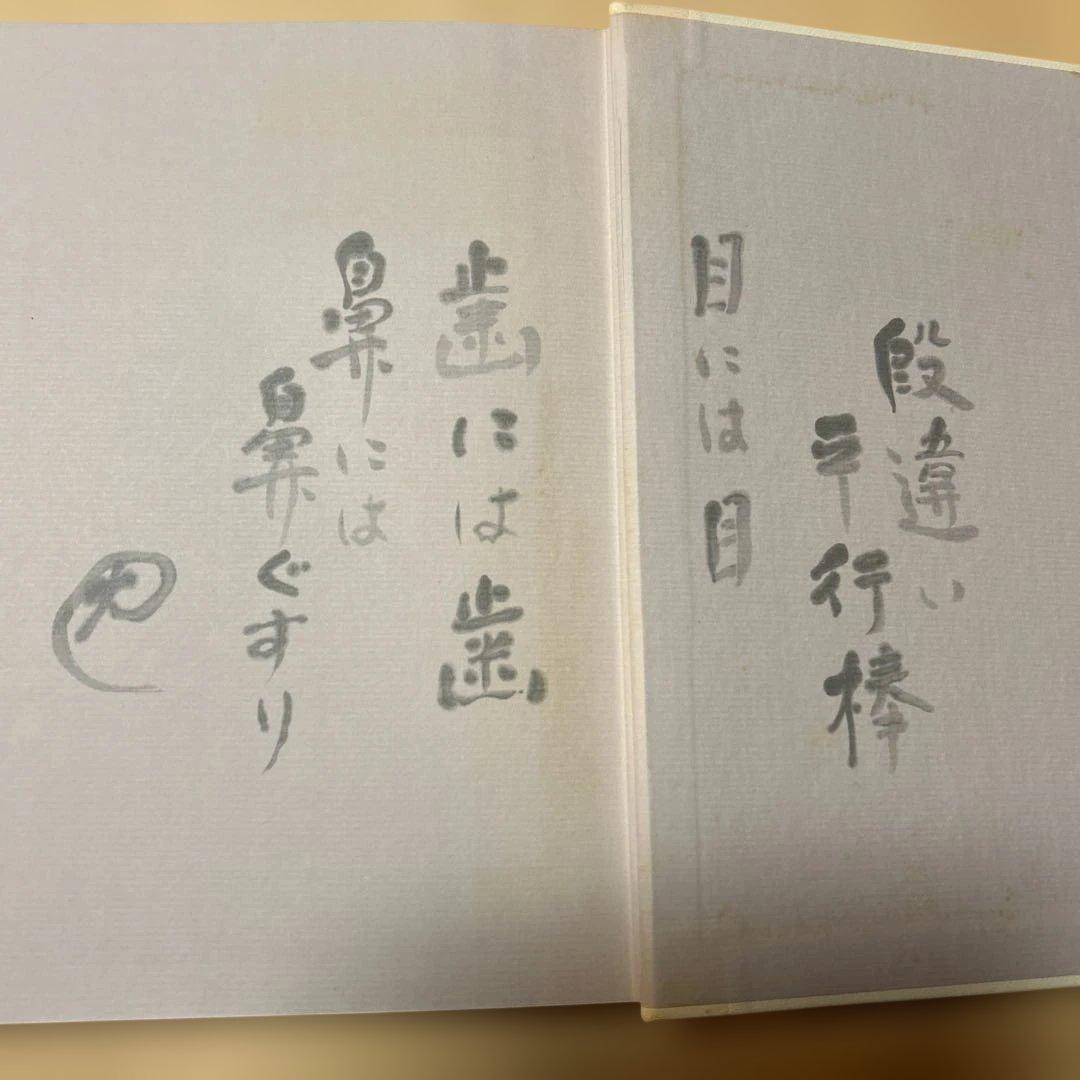 段違い
平行棒
目には目
歯には歯
鼻には
鼻ぐすり